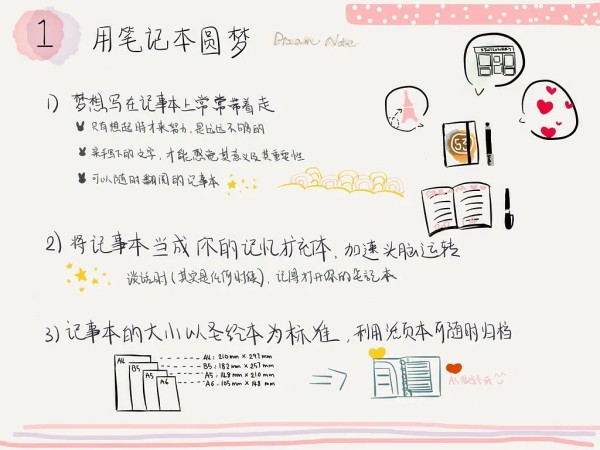 1 用笔记本圆梦 Dream Note
STATIONERY
1) 梦想写在记事本上常常带着走
只有想起时才来努力,是远远不够的
亲手写下的文字,才能感觉其意义及其重要性
可以随时翻阅的记事本
2) 将记事本当成你的记忆扩充体,加速头脑运转
谈话时(其实是任何时候),记得打开你的笔记本
3) 记事本的大小以圣经本为标准,利用活页本可随时归档
A4 B5 A5 A6
A4: 210mm × 297mm
B5: 182mm × 257mm
A5: 148mm × 210mm
A6: 105mm × 148mm